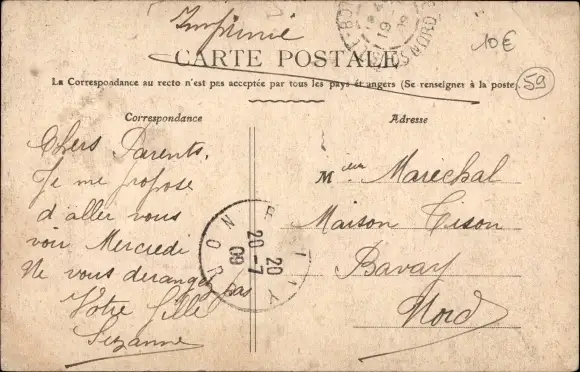 Imprimé
10€
CARTE POSTALE
59
La Correspondance au recto n'est pas acceptée par tous les pays étrangers (Se renseigner à la poste).
Correspondance
Chers Parents,
Je me propose
d'aller vous
voir Mercredi
Ne vous derangez pas
Votre fille
Suzanne
Adresse
Mr Maréchal
Maison Tison
Bavay
Nord
20
20-7
09
NORD